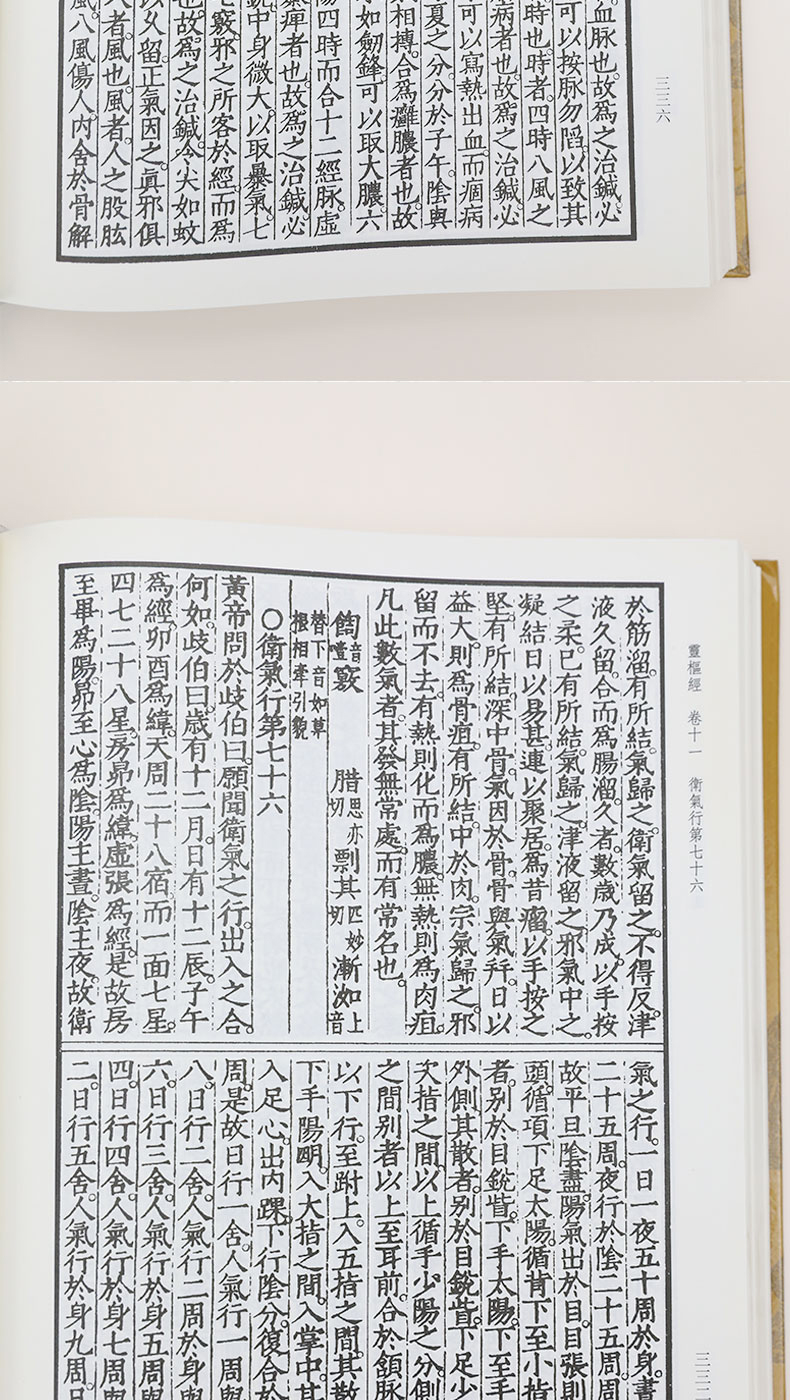 血脉也。故爲之治鍼。必
可以按脉勿陷。以致其
時也。時者。四時八風之
病者也。故爲之治鍼。必
可以寫熱出血。而痼病
夏之分。分於子午。陰與
相搏。合爲癰膿者也。故
如劒鋒。可以取大膿。六
陽四時而合十二經脉。虚
痺者也。故爲之治鍼。必
中身微大。以取暴氣。七
竅。邪之所客於經。而爲
也。故爲之治鍼。令尖如蚊
以久留。正氣因之。眞邪俱
者風也。風者。人之股肱
八風傷人。内舍於骨解
三三六
靈樞經 卷十一 衛氣行第七十六
於筋溜。有所結。氣歸之。衛氣留之。不得反。津
液久留。合而爲腸溜。久者。數歳乃成。以手按
之柔。巳有所結。氣歸之。津液留之。邪氣中之。
凝結日以易甚。連以聚居。爲昔瘤。以手按之
堅。有所結。深中骨。氣因於骨。骨與氣幷。日以
益大。則爲骨疽。有所結。中於肉。宗氣歸之。邪
留而不去。有熱則化而爲膿。無熱則爲肉疽。
凡此數氣者。其發無常處。而有常名也。
竅 腊思亦切 剽其匹妙切 漸洳上音
替下音如草
根相牽引貌
〇衛氣行第七十六
黃帝問於歧伯曰。願聞衛氣之行。出入之合。
何如。歧伯曰。歳有十二月。日有十二辰。子午
爲經。卯酉爲緯。天周二十八宿。而一面七星。
四七二十八星。房昴爲緯。虛張爲經。是故房
至畢爲陽。昴至心爲陰。陽主晝。陰主夜。故衛
氣之行。一日一夜五十周於身。晝
二十五周。夜行於陰二十五周。周
故平旦陰盡。陽氣出於目。目張則
頭。循項下足太陽。循背下至小指
者。別於目銳眥。下手太陽。下至手
外側。其散者。別於目銳眥。下足少
次指之間。以上循手少陽之分。側
之間。別者以上至耳前。合於頷脉
以下行。至跗上。入五指之間。其散
下手陽明。入大指之間。入掌中。其
入足心。出内踝。下行陰分。復合於
周。是故日行一舍。人氣行一周與
八。日行二舍。人氣行二周於身與
六。日行三舍。人氣行於身五周與
四。日行四舍。人氣行於身七周與
二。日行五舍。人氣行於身九周。日